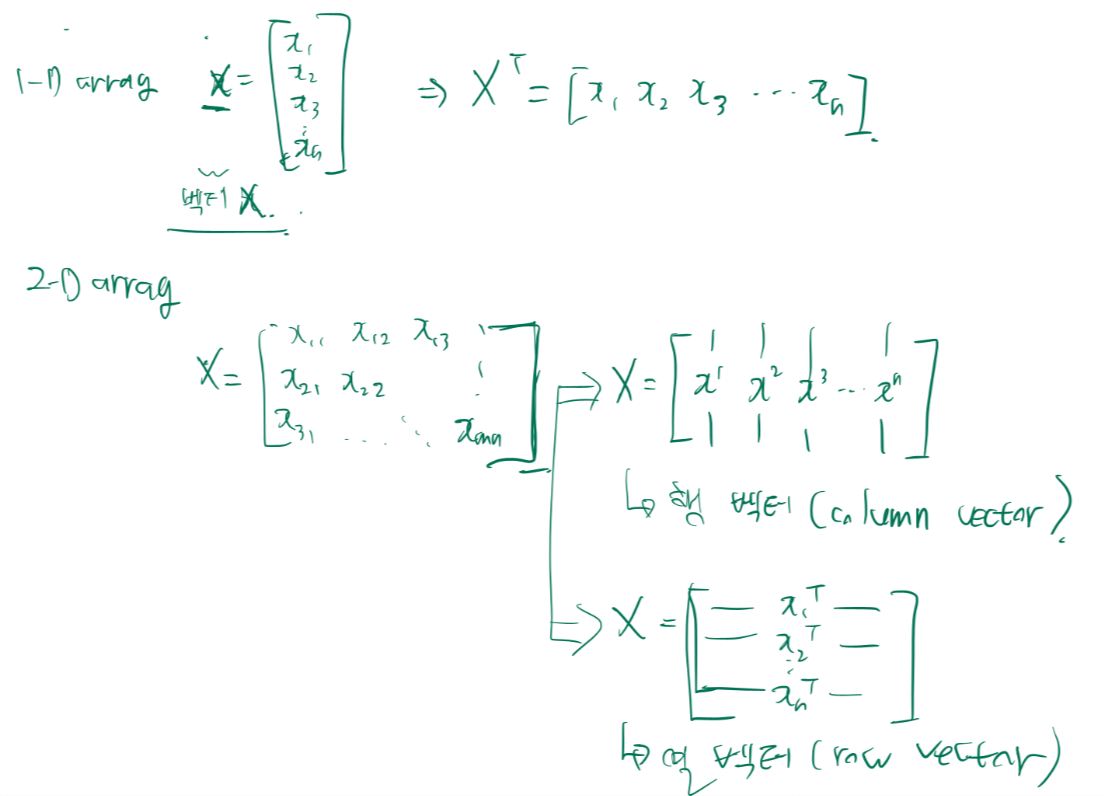 1-D array X = [x₁ x₂ x₃ ⋮ xₙ] ⇒ Xᵀ = [x₁ x₂ x₃ ⋯ xₙ].
벡터 X.
2-D array
X = [x₁₁ x₁₂ x₁₃ x₂₁ x₂₂ x₃₁ ⋯ ⋱ xₘₙ]
⇒ X = [x¹ x² x³ ⋯ xⁿ]
↳ 행 벡터 (column vector).
⇒ X = [x₁ᵀ x₂ᵀ ⋮ xₙᵀ]
↳ 열 벡터 (row vector)